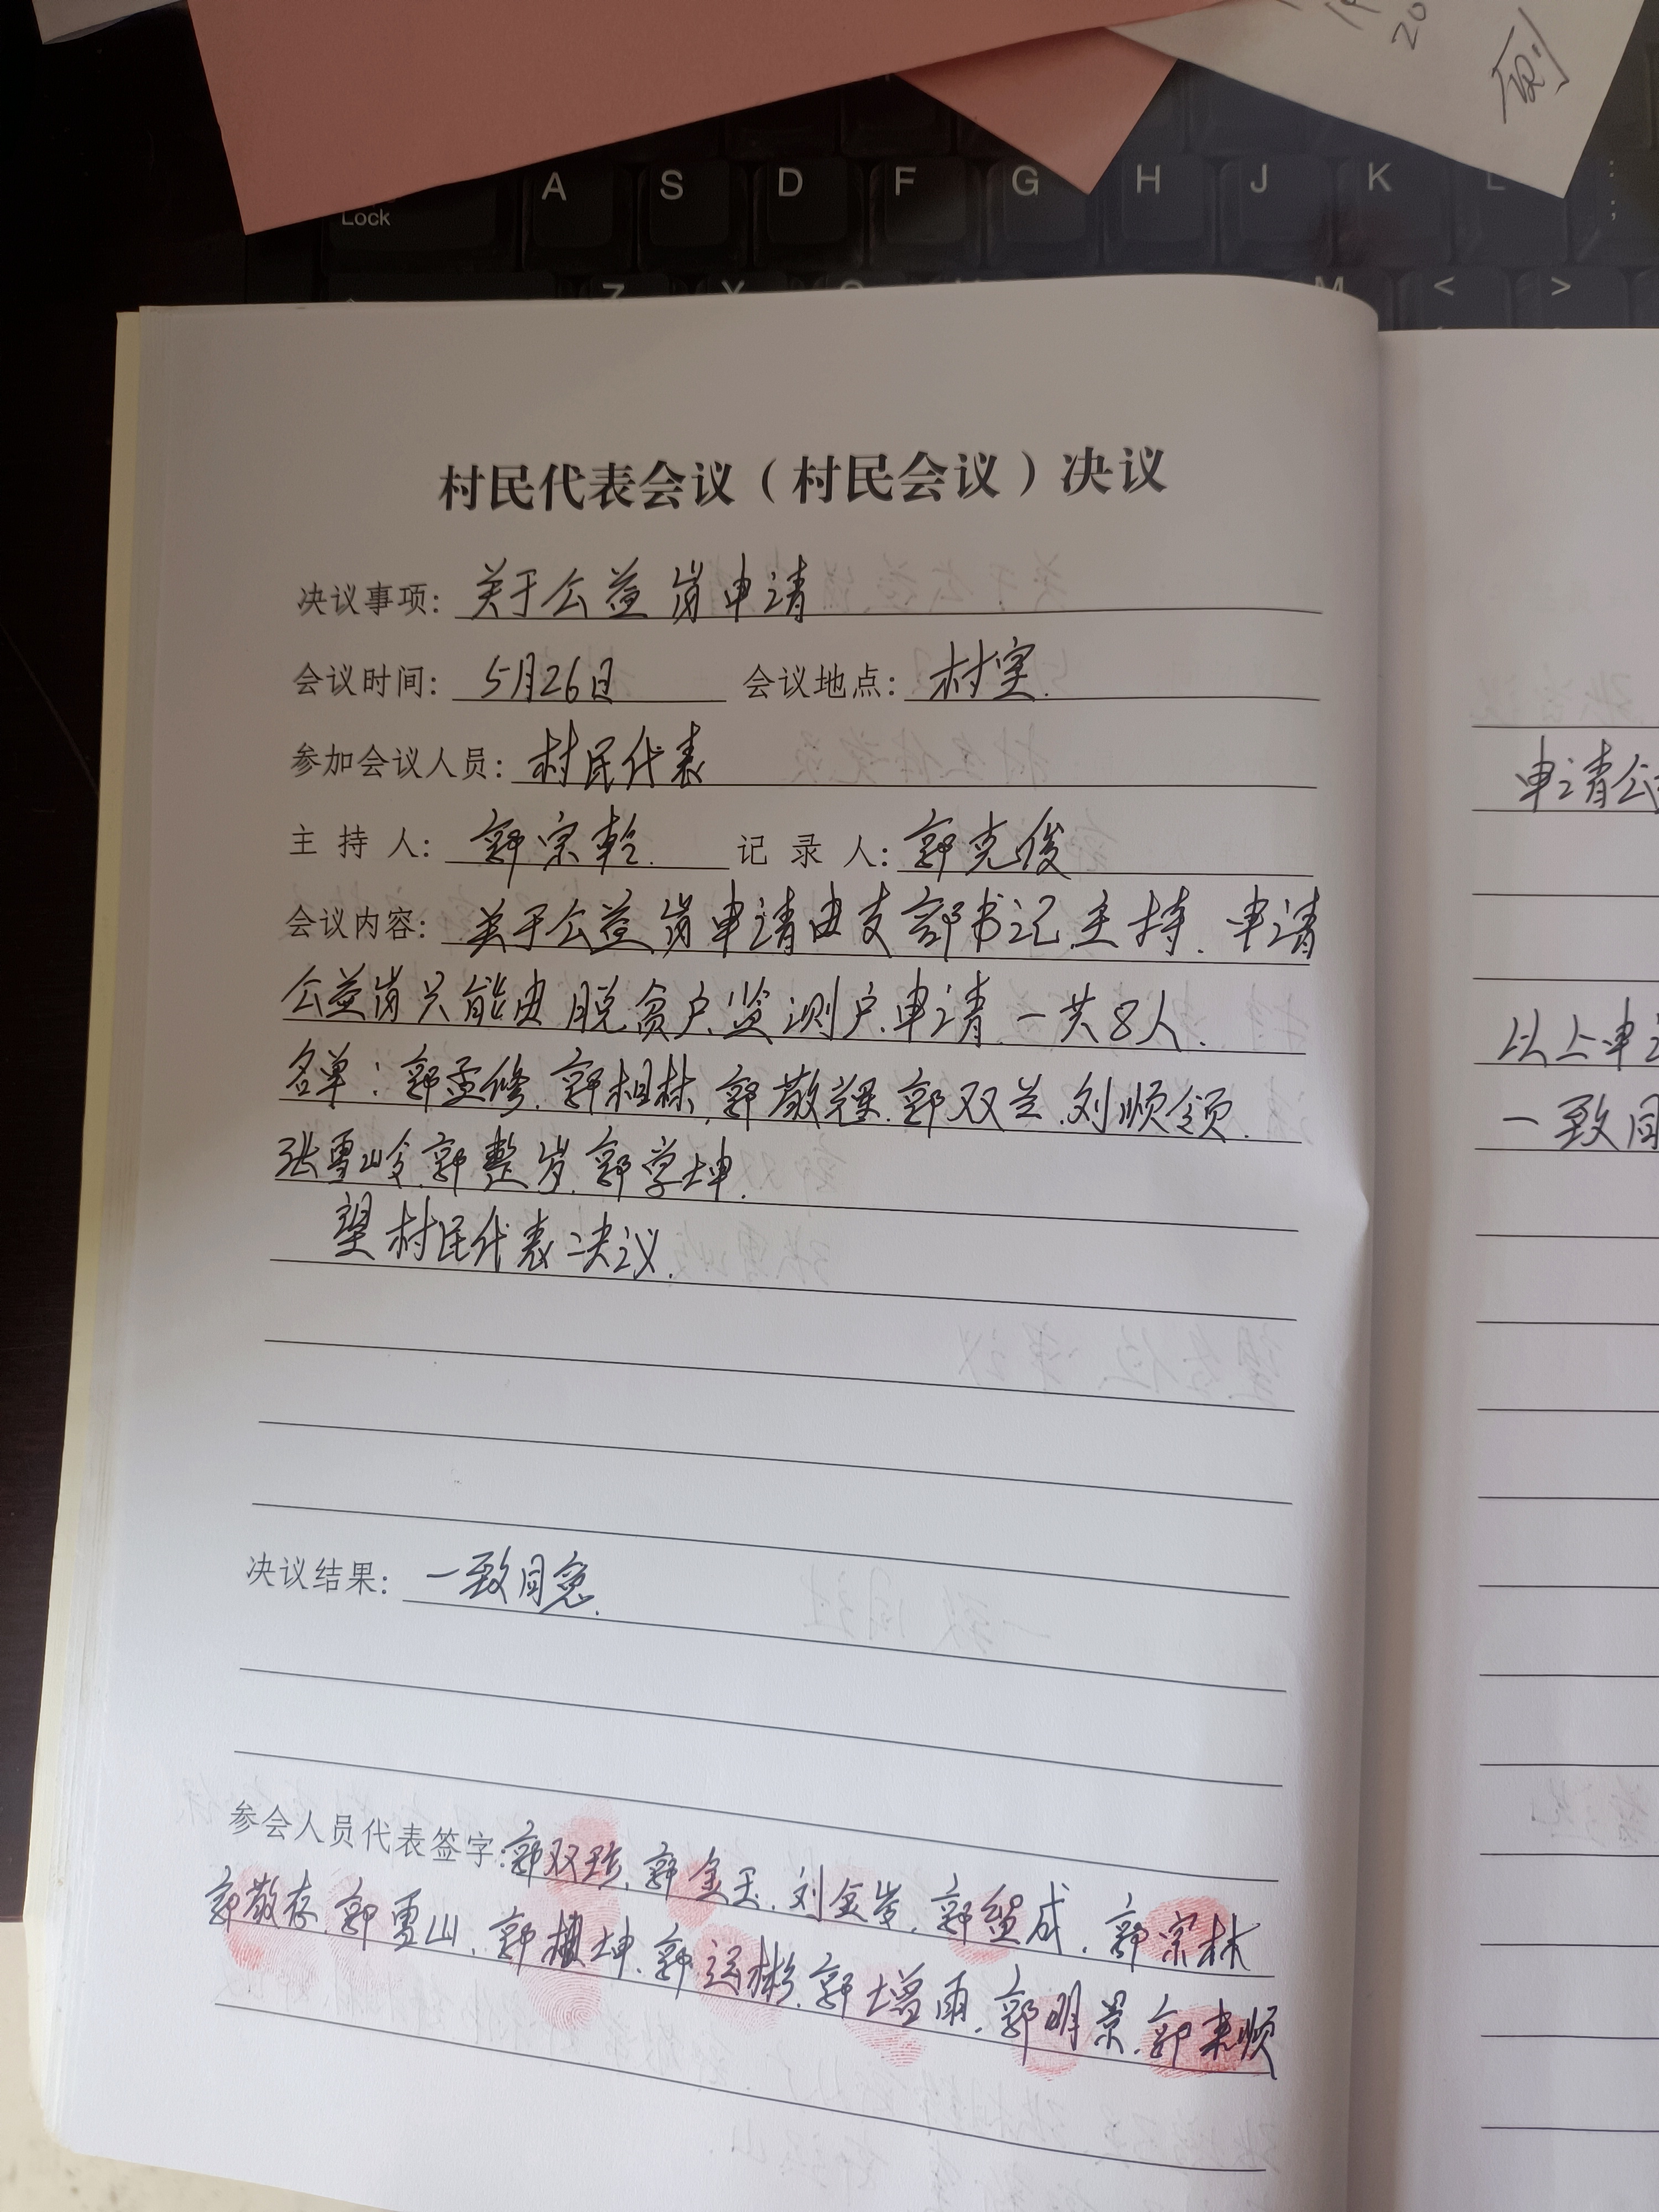 20
A S D F G H J K L
Lock
Z X M < >
村民代表会议（村民会议）决议
决议事项: 关于公益岗申请
会议时间: 5月26日 会议地点: 村室.
参加会议人员: 村民代表
主 持 人: 郭宗乾. 记 录 人: 郭克俊
会议内容: 关于公益岗申请由支部书记主持.申请
公益岗只能由脱贫户.监测户.申请.一共8人.
名单:郭孟修.郭相林.郭敬.郭双兰.刘顺领.
张雪岭.郭整岁.郭学坤.
望村民代表决议.
决议结果: 一致同意.
参会人员代表签字:郭双珍.郭金玉.刘金岁.郭成.郭宗林
郭敬存.郭雪山.郭坤.郭运彬.郭增雨.郭明景.郭来顺
申请公
以上申
一致同